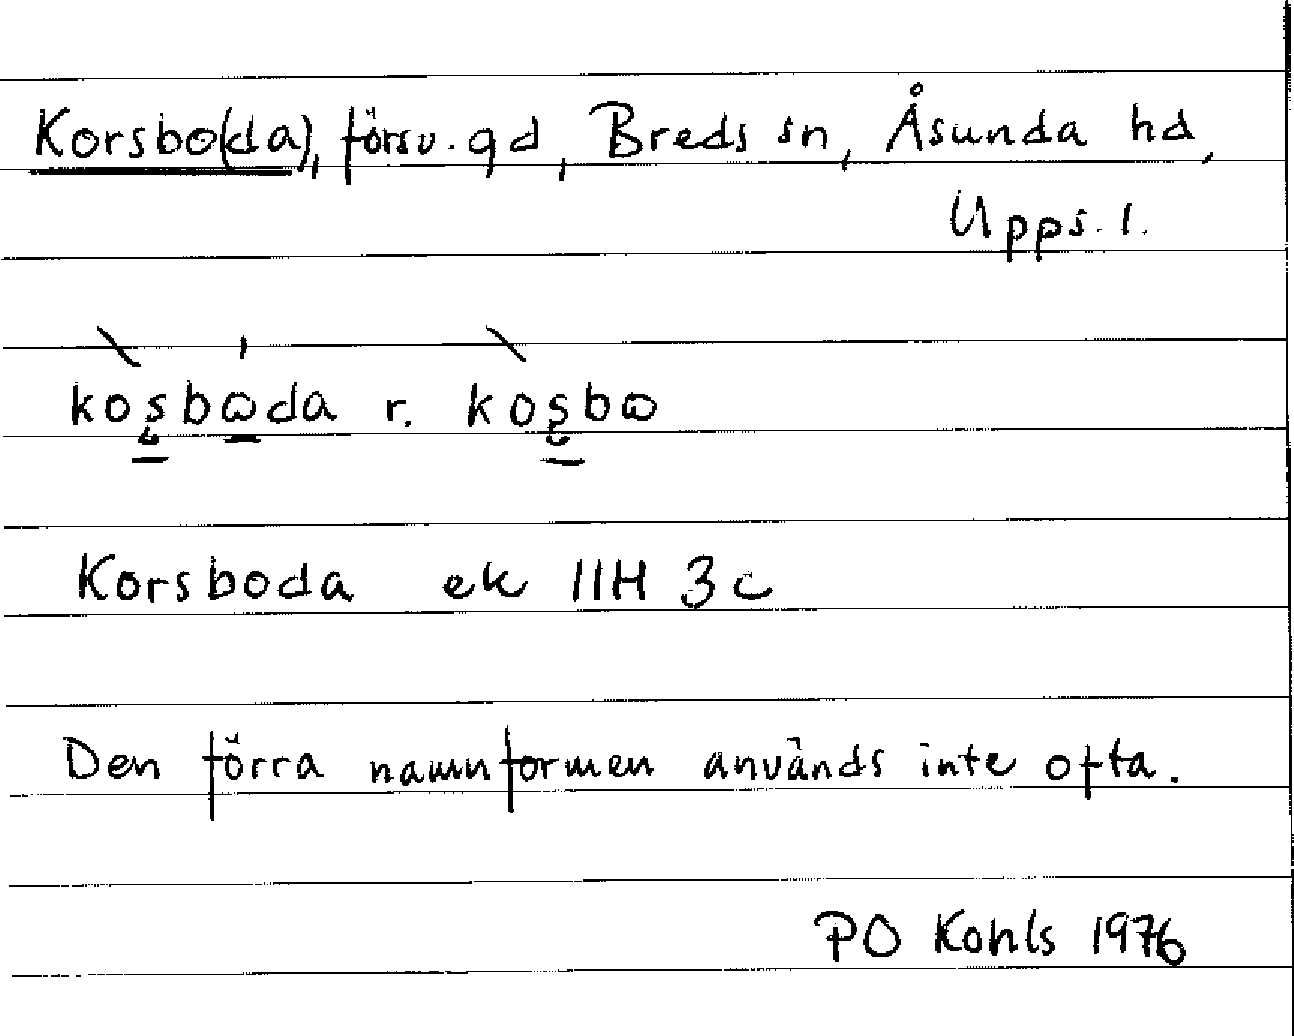 Korsbo(da), försv. gd, Breds sn, Åsunda hd,
Upps. l.
kòʂbꞷ̠̍da r. kòʂbꞷ
Korsboda ek 11H 3c
Den förra namnformen används inte ofta.
PO Kohls 1976